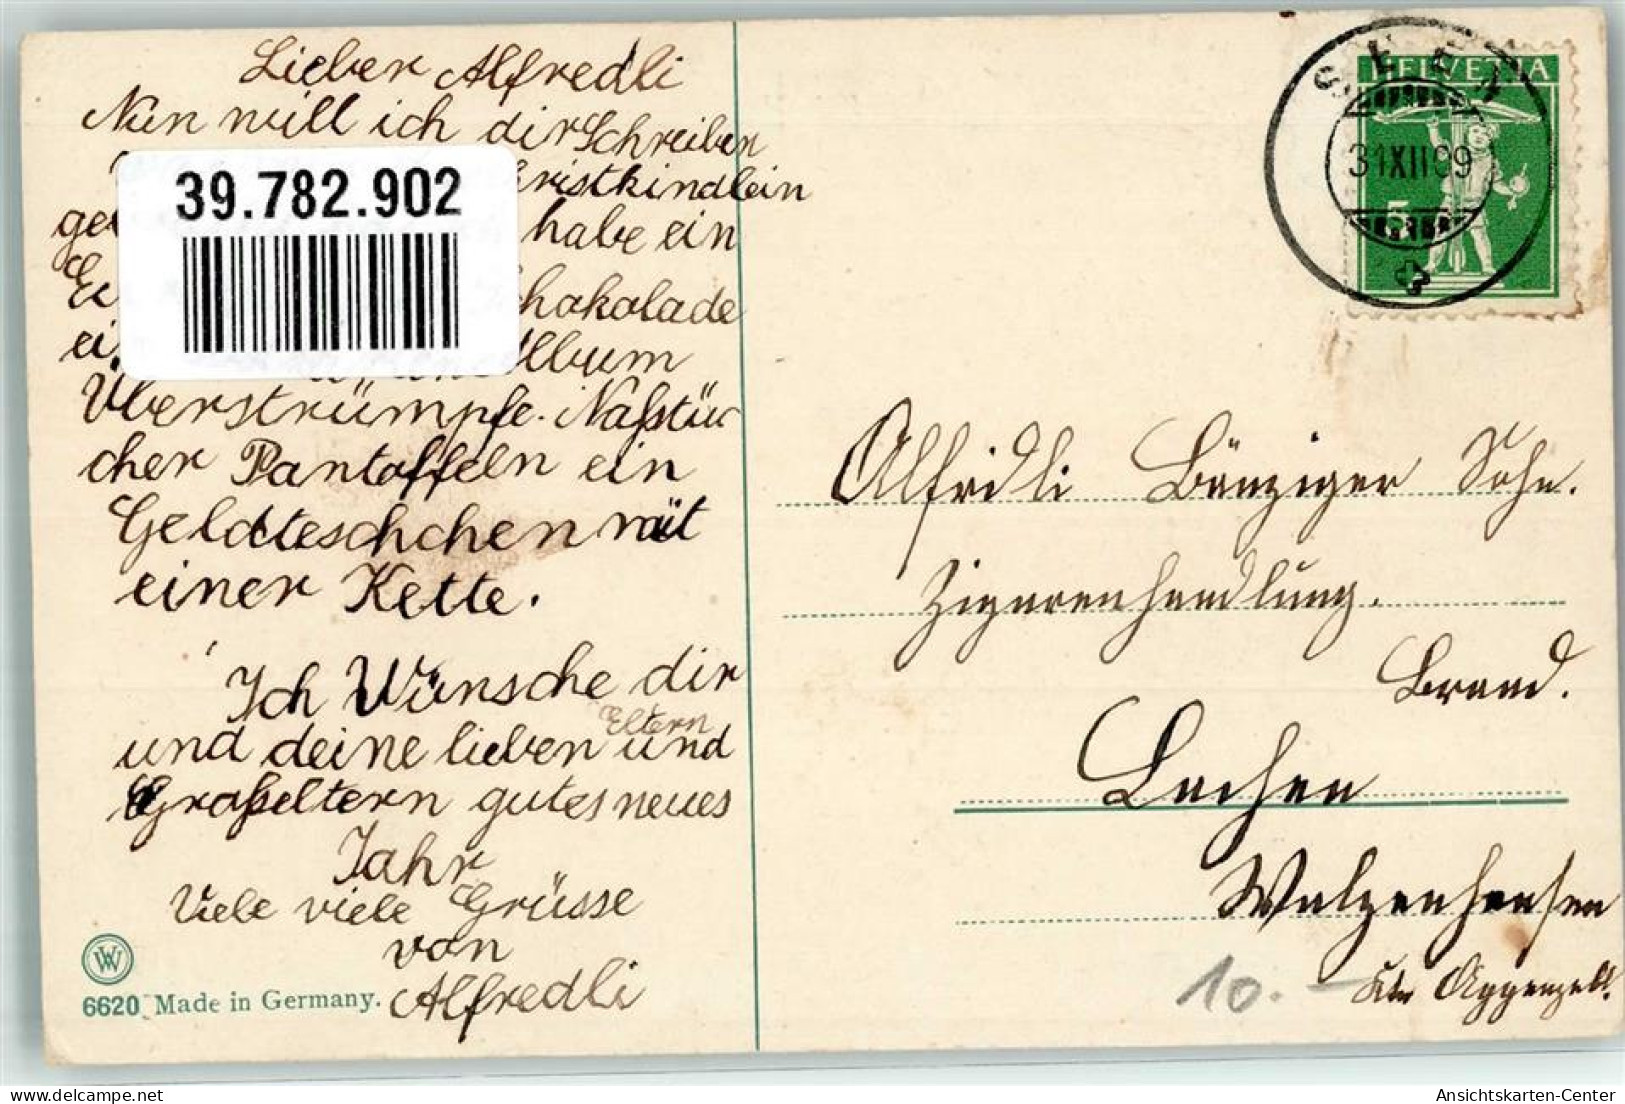 Lieber Alfredli
Nun will ich dir Schreiben
39.782.902
habe ein
Schokolade
Album
Überstrümpfe. Naßtü
cher Pantoffeln ein
Geldteschchen mit
einer Kette.
Ich Wünsche dir
Eltern
und deine lieben und
Großeltern gutes neues
Jahr
Viele viele Grüsse
von
Alfredli
WW
6620 Made in Germany.
HELVETIA
5
31 XII 09
Alfredli Bänziger Sohn.
Zigarenhandlung.
Brand.
Lachen
Walzenhausen
Ktn Appenzell.
10.-
delcampe.net
Ansichtskarten-Center